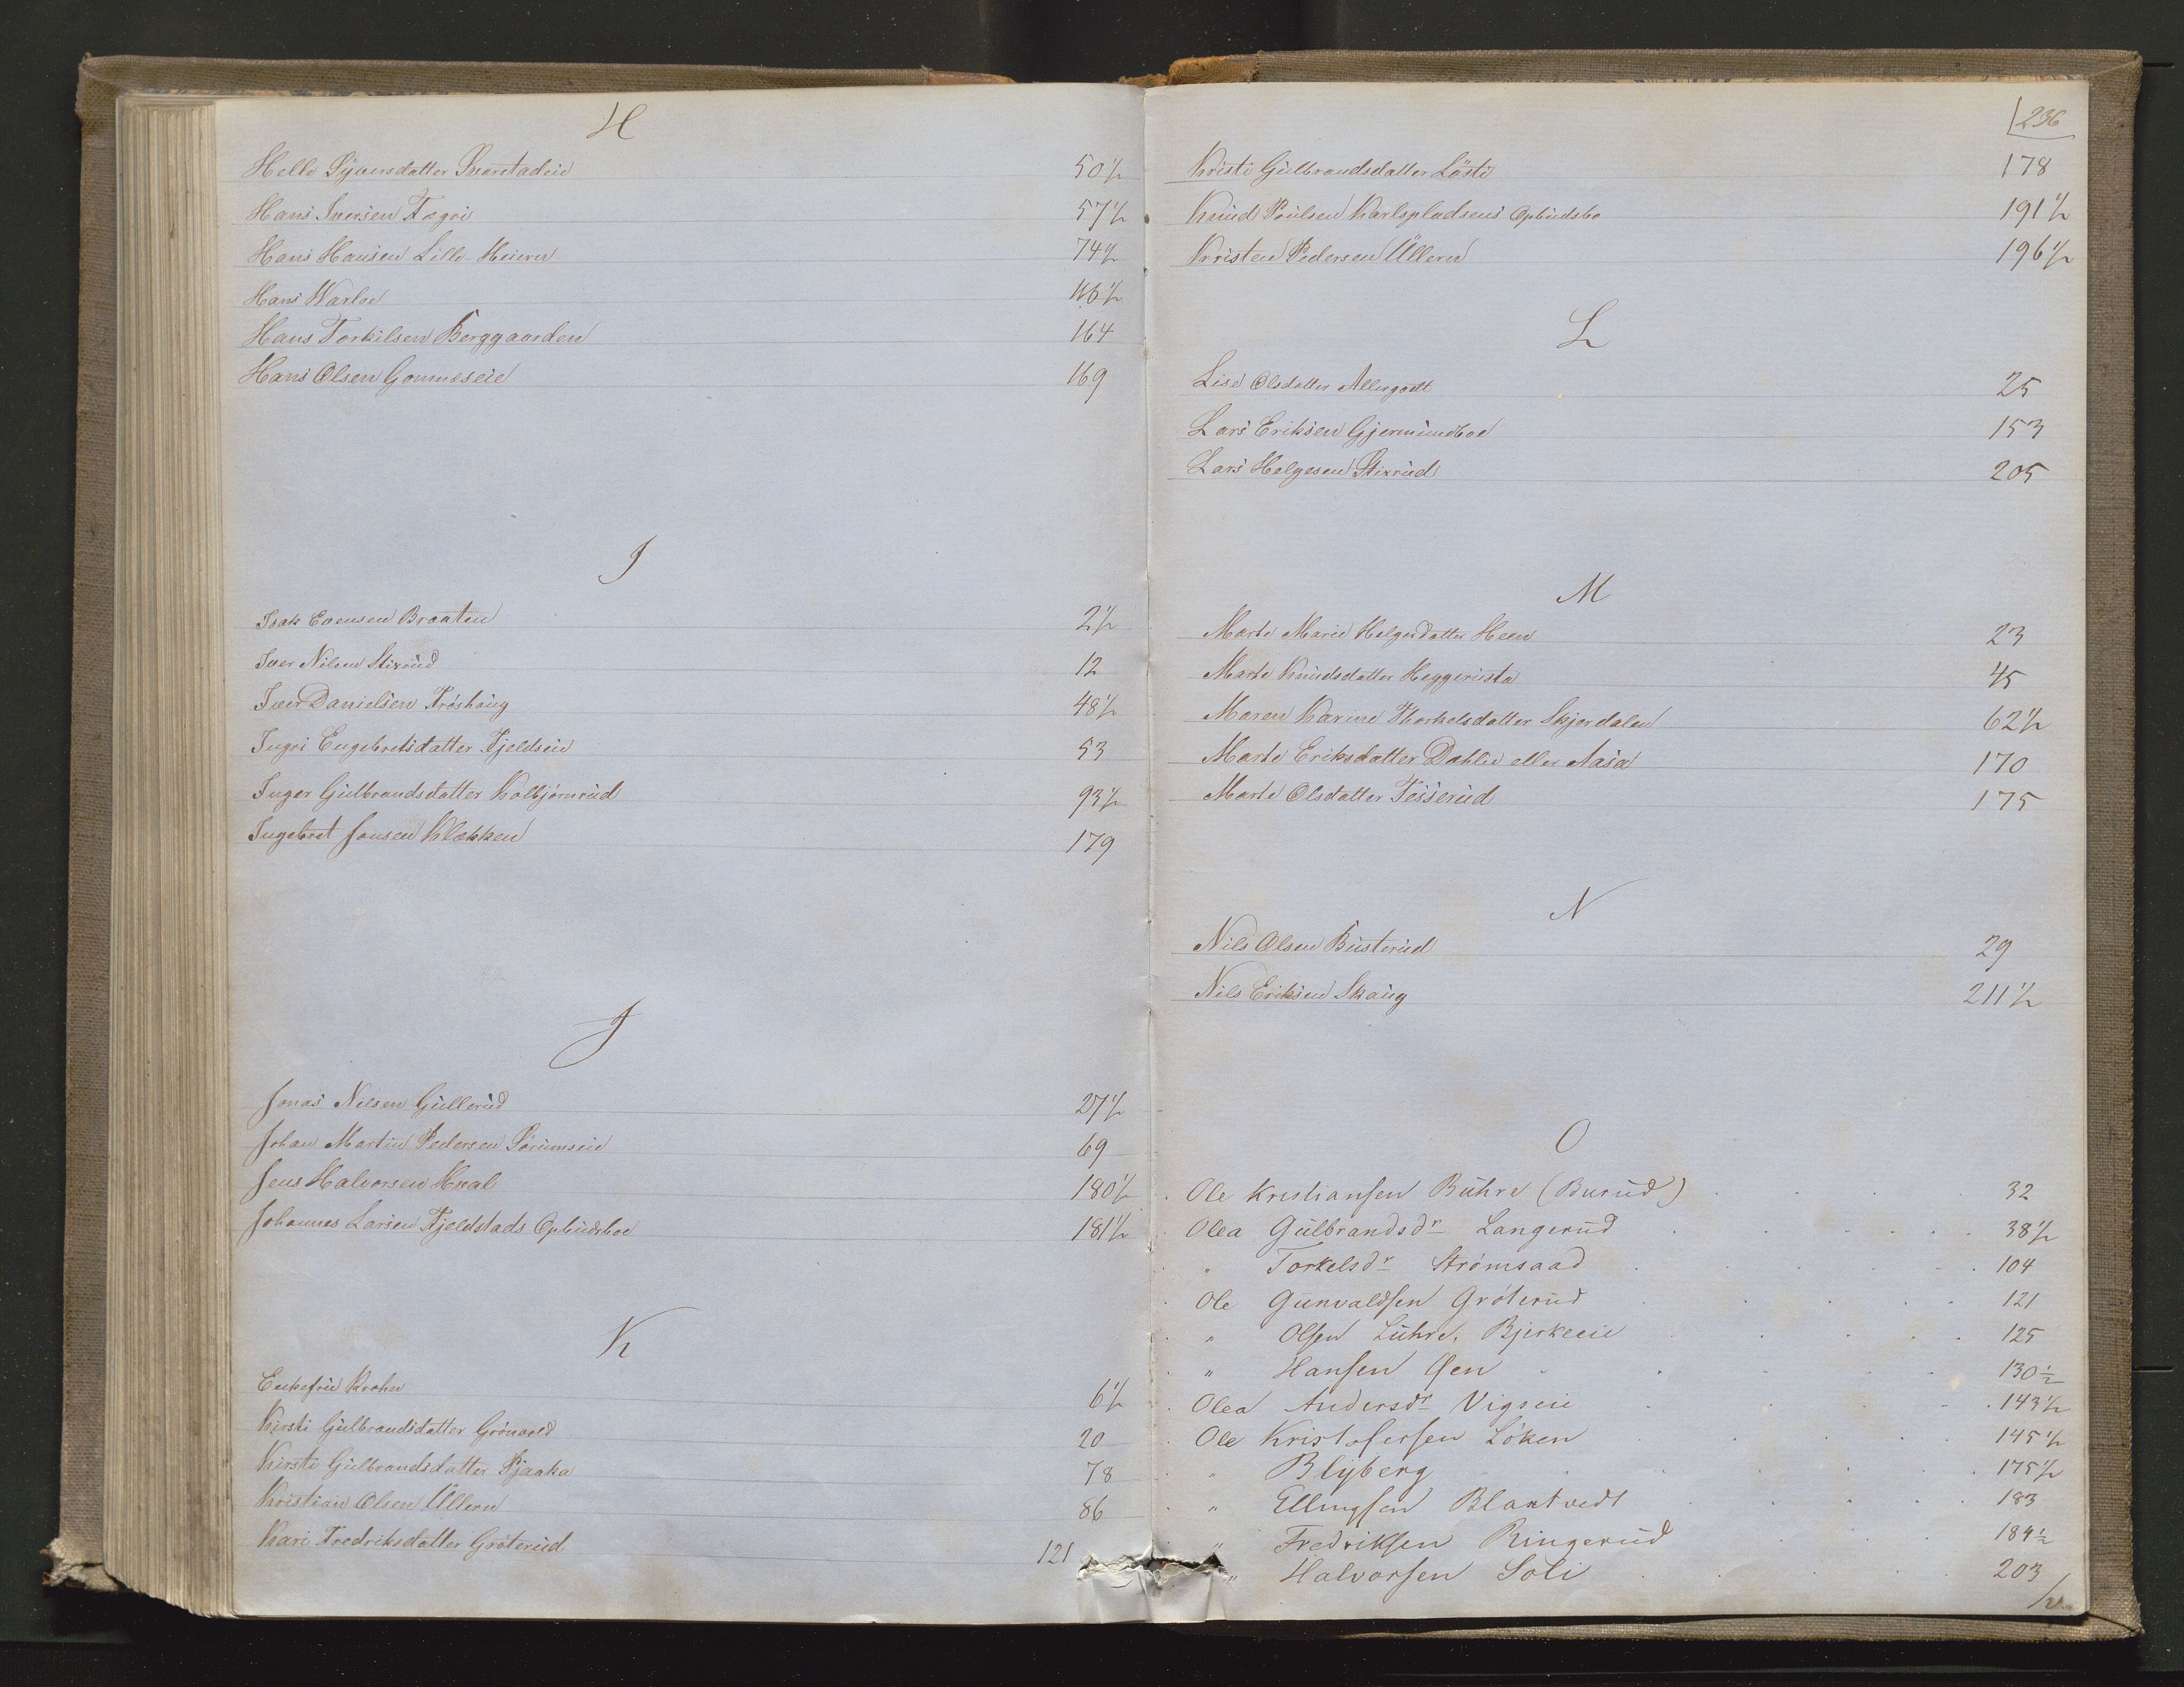 H
Helle Syversdatter Svarstadeie 50½
Hans Iversen Fægri 57½
Hans Hansen Lille-Heiern 74½
Hans Warloe
Hans Torkilsen Berggaarden 164
Hans Olsen Gommeseie 169
I
Isak Evensen Braaten 2½
Iver Nilsen Stixrud 12
Iver Danielsen Frøshaug 48½
Ingri Engebretsdatter Fjeldseie 53
Inger Gulbrandsdatter Kolbjørnrud 93½
Ingebret Jonsen Klækken 179
J
Jonas Nilsen Gullerud 27½
Johan Martin Pedersen Sørumseie 69
Jens Halvorsen Hval 180½
Johannes Larsen Fjeldstads Opbudsboe 181½
K
Enkefru Krohn 6½
Kirsti Gulbrandsdatter Grønvold 20
Kirsti Gulbrandsdatter Sjaaka 78
Kristian Olsen Ullern 86
Kari Fredriksdatter Grøterud 121
236
Kristi Gulbrandsdatter Løsti 178
Knud Poulsen Karlspladsens Opbudsbo 191½
Kristen Pedersen Ullern 196½
L
Lise Olsdatter Allergodt 25
Lars Eriksen Gjermundboe 153
Lars Helgesen Stixrud 205
M
Marte Marie Helgesdatter Heen 23
Marte Knudsdatter Heggerusta 45
Maren Karine Thorkelsdatter Skjerdalen 62½
Marte Eriksdatter Dahlie eller Aasa 170
Marte Olsdatter Tesserud 175
N
Nils Olsen Busterud 29
Nils Eriksen Skaug 211½
O
Ole Kristiansen Buhre (Burud) 32
Olea Gulbrandsdr Langerud 38½
" Torkelsdr Strømsaad 104
Ole Gunvaldsen Grøterud 121
" Olsen Luhre, Bjerkeeie 125
" Hansen Gen 130½
Olea Andersdr Vigseie 143½
Ole Kristofersen Løken 145½
" Blyberg 175½
" Ellingsen Blaktvedt 183
" Fredriksen Ringerud 184½
" Halvorsen Soli 203